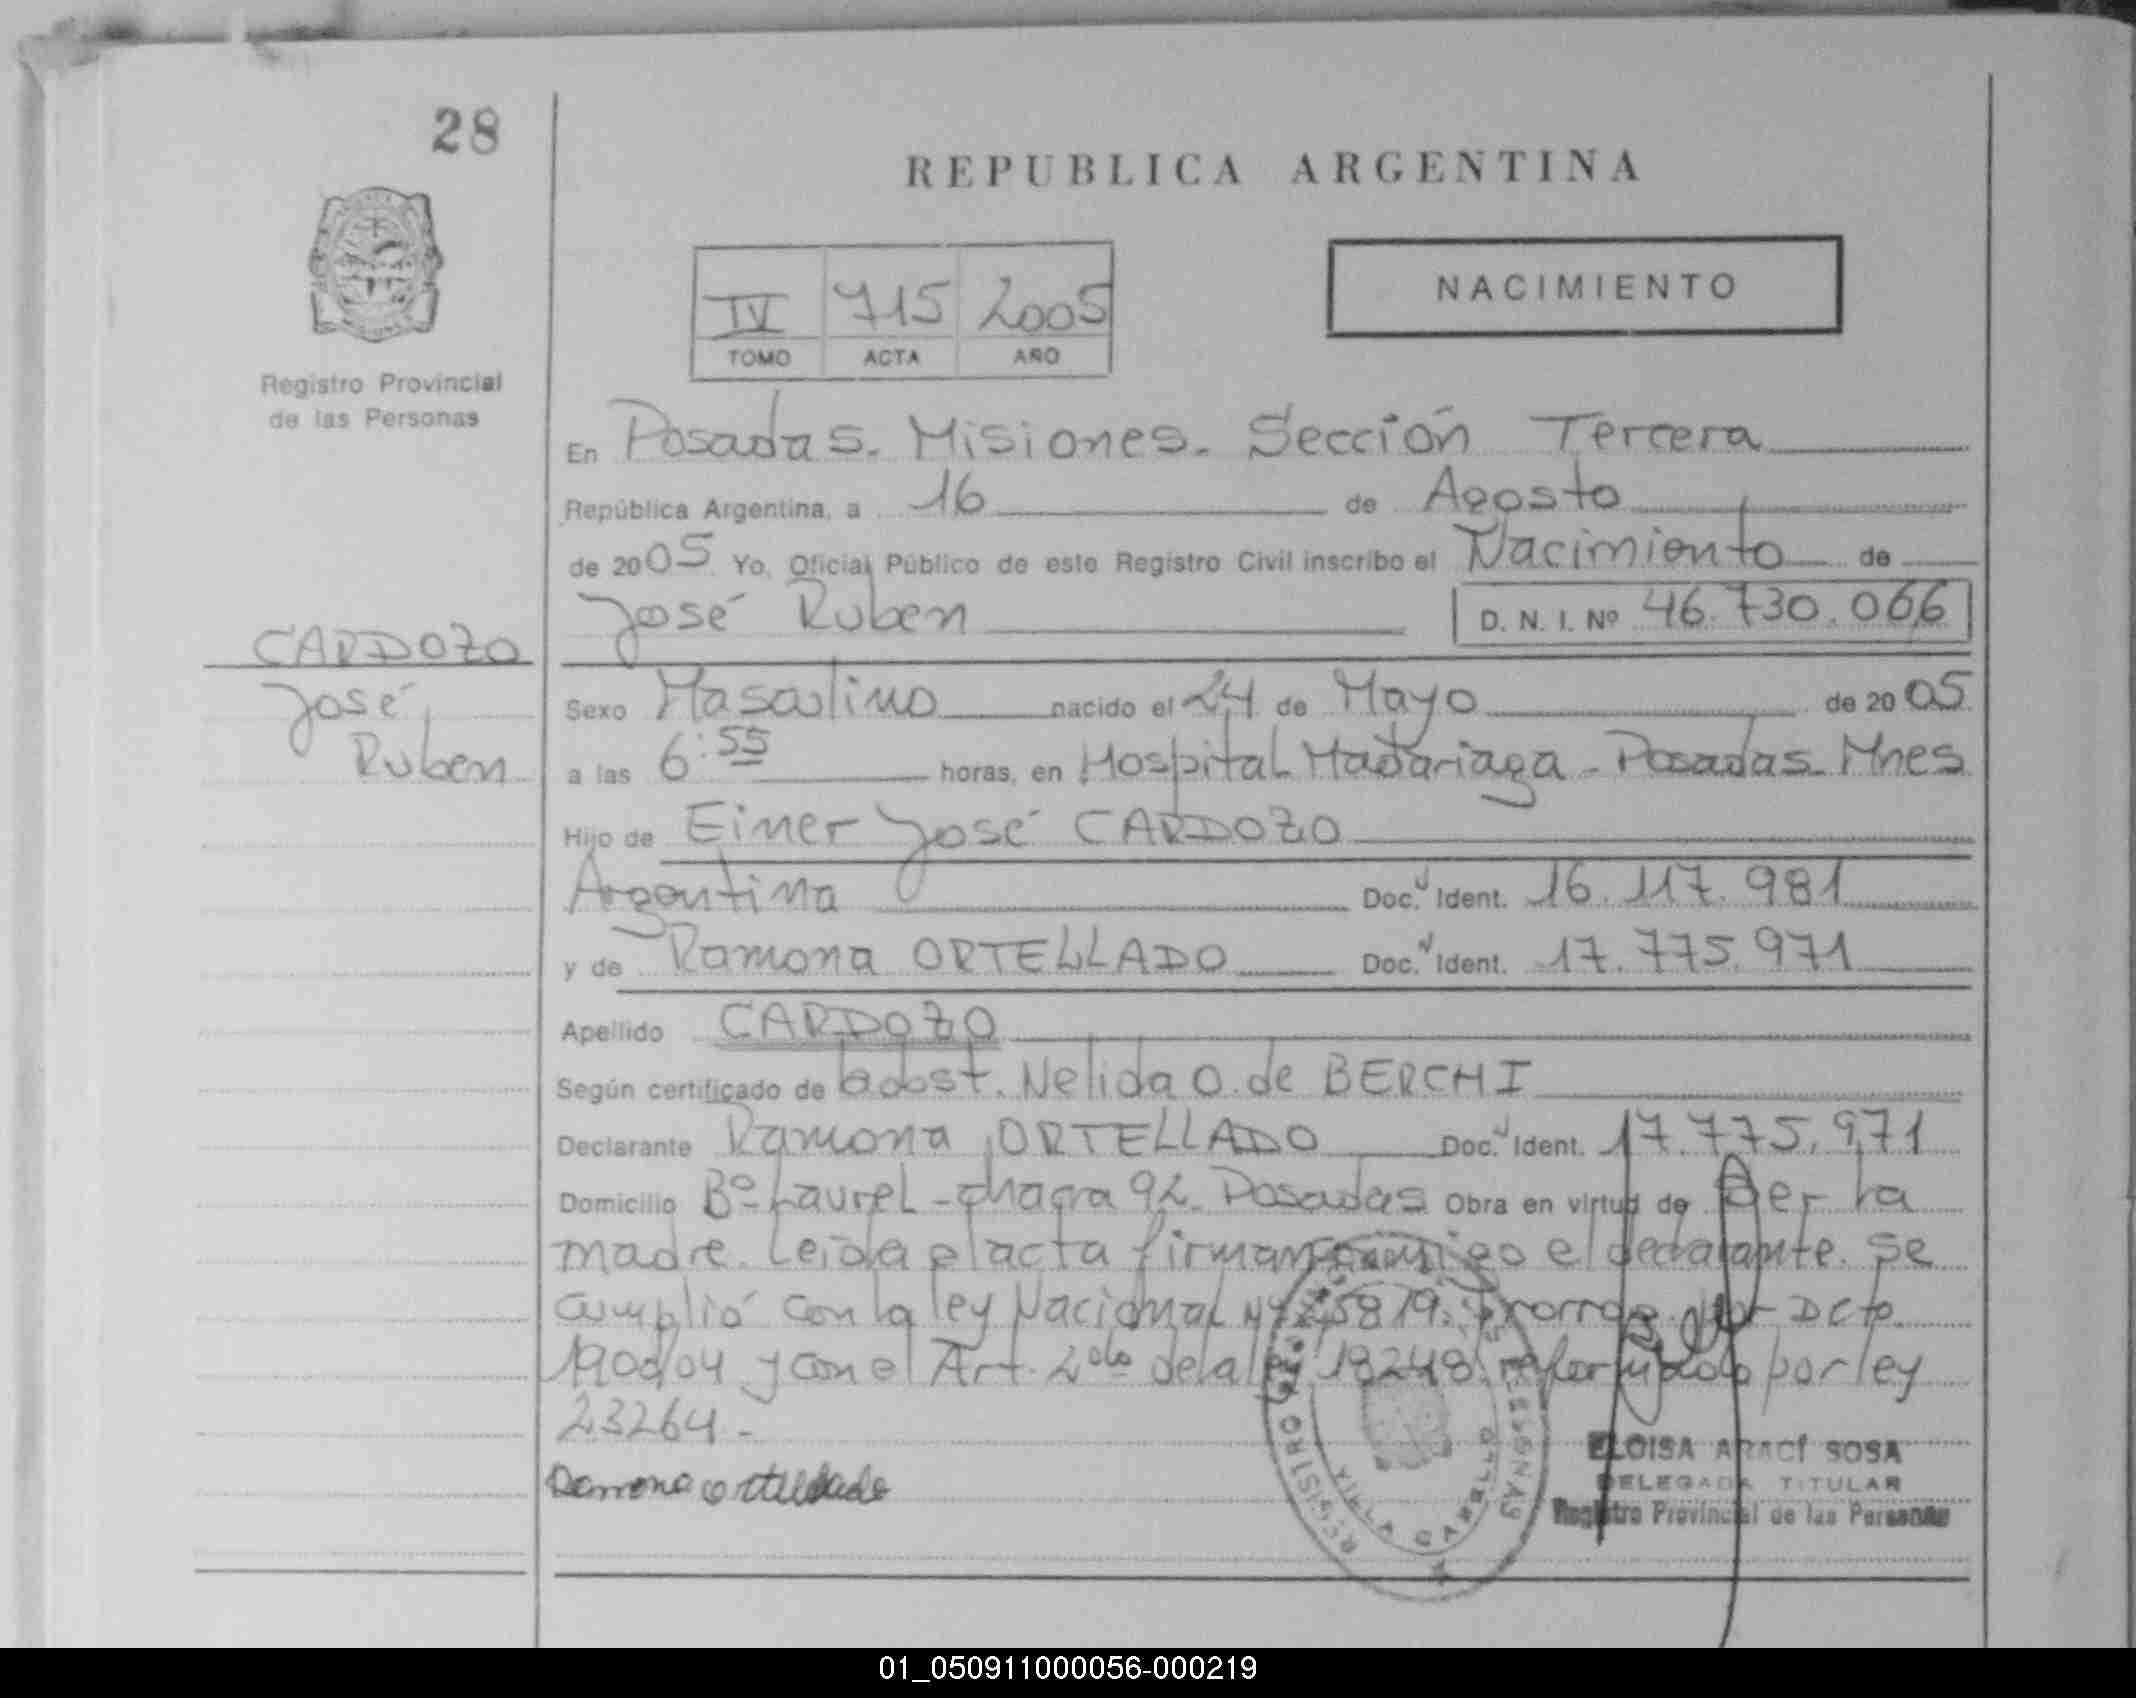 28
REPUBLICA ARGENTINA
NACIMIENTO
IV 715 2005
TOMO ACTA AÑO
Registro Provincial
de las Personas
En Posadas. Misiones. Sección Tercera
República Argentina, a 16 de Agosto
de 2005. Yo, Oficial Público de este Registro Civil inscribo el Nacimiento de
José Ruben D. N. I. Nº 46.730.066
CARDOZO
José
Ruben
Sexo Masculino nacido el 24 de Mayo de 2005
a las 6:55 horas, en Hospital Madariaga - Posadas - Mnes
Hijo de Eimer José CARDOZO
Argentina Doc. Ident. 16.117.981
y de Ramona ORTELLADO Doc. Ident. 17.775.971
Apellido CARDOZO
Según certificado de obst. Nelida O. de BERCHI
Declarante Ramona ORTELLADO Doc. Ident. 17.775.971
Domicilio Bº Laurel - chacra 92. Posadas Obra en virtud de Ser la
madre. Leida el acta firman conmigo el declarante. Se
cumplió con la ley Nacional Nº 25819. Prorrog. por Dcto.
1900/04 y con el Art. 2do de la ley 18248 reformado por ley
23264 -
Ramona ortellado
ELOISA ARACÍ SOSA
DELEGADA TITULAR
Registro Provincial de las Personas
REGISTRO
VILLA CABELLO
01_050911000056-000219